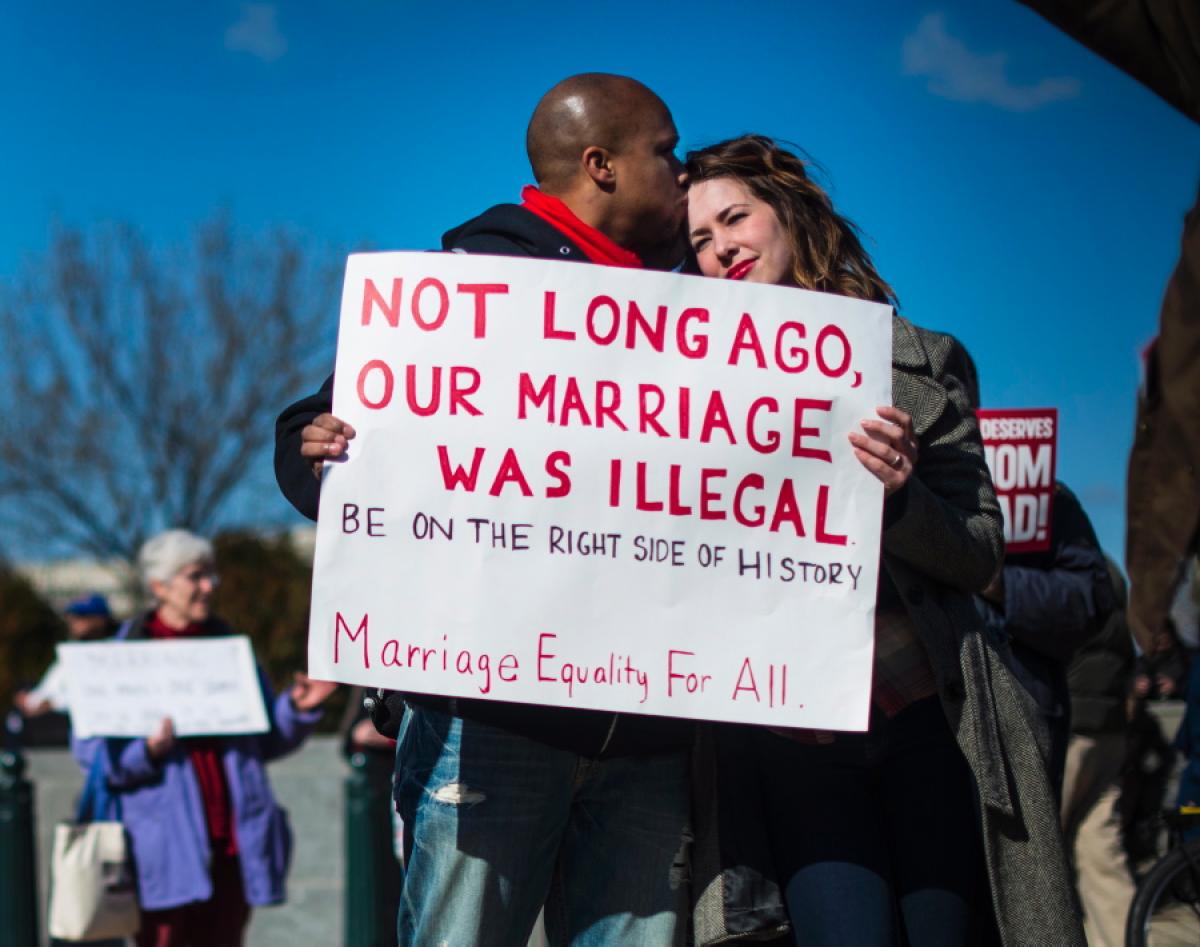 NOT LONG AGO,
OUR MARRIAGE
WAS ILLEGAL.
BE ON THE RIGHT SIDE OF HISTORY
Marriage Equality For All.
DESERVES